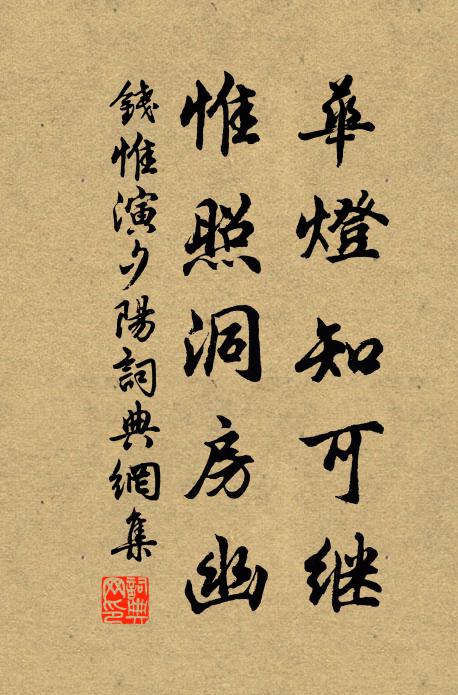 華燈知可继
惟照洞房幽
錢惟演夕陽詞典網集
詞典網印